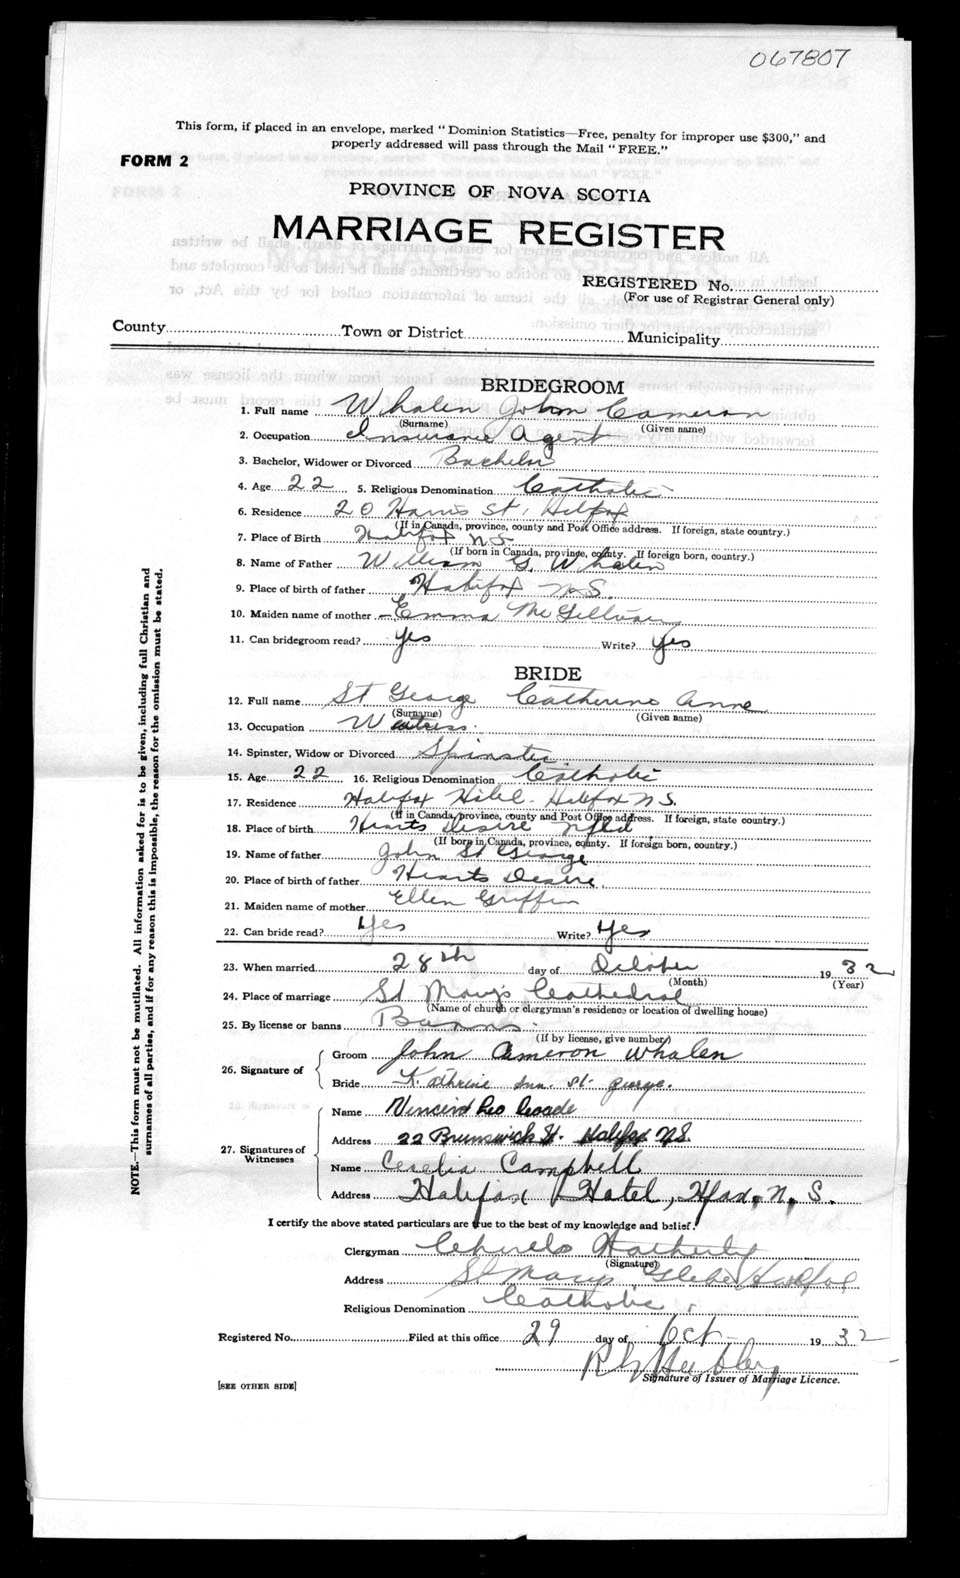 067807
This form, if placed in an envelope, marked "Dominion Statistics—Free, penalty for improper use $300," and
properly addressed will pass through the Mail "FREE."
FORM 2
PROVINCE OF NOVA SCOTIA
MARRIAGE REGISTER
REGISTERED No.
(For use of Registrar General only)
County Town or District Municipality
BRIDEGROOM
1. Full name Whalen John Cameron
(Surname) (Given name)
2. Occupation Insurance Agent
3. Bachelor, Widower or Divorced Bachelor
4. Age 22 5. Religious Denomination Catholic
6. Residence 20 Harris St, Halifax
(If in Canada, province, county and Post Office address. If foreign, state country.)
7. Place of Birth Halifax N.S.
(If born in Canada, province, county. If foreign born, country.)
8. Name of Father William G. Whalen
9. Place of birth of father Halifax N.S.
10. Maiden name of mother Emma McGillivray
11. Can bridegroom read? Yes Write? Yes
BRIDE
12. Full name St George Catherine Anne
(Surname) (Given name)
13. Occupation Waitress
14. Spinster, Widow or Divorced Spinster
15. Age 22 16. Religious Denomination Catholic
17. Residence Halifax Hotel - Halifax N.S.
(If in Canada, province, county and Post Office address. If foreign, state country.)
18. Place of birth Hearts Desire Nfld
(If born in Canada, province, county. If foreign born, country.)
19. Name of father John St George
20. Place of birth of father Hearts Desire
21. Maiden name of mother Ellen Griffin
22. Can bride read? Yes Write? Yes
23. When married 28th day of October 1932
(Month) (Year)
24. Place of marriage St Mary's Cathedral
(Name of church or clergyman's residence or location of dwelling house)
25. By license or banns Banns.
(If by license, give number)
26. Signature of Groom John Cameron Whalen
Bride Kathrine Ann. St. George.
27. Signatures of Witnesses
Name Vincent Leo
Address 22 Brunswick St. Halifax N.S.
Name Cecelia Campbell
Address Halifax Hotel, Hfax, N, S.
I certify the above stated particulars are true to the best of my knowledge and belief.
Clergyman
(Signature)
Address St Marys Glebe Halifax
Religious Denomination Catholic
Registered No. Filed at this office 29 day of Oct - 1932
Signature of Issuer of Marriage Licence.
[SEE OTHER SIDE]
NOTE.—This form must not be mutilated. All information asked for is to be given, including full Christian and
surnames of all parties, and if for any reason this is impossible, the reason for the omission must be stated.